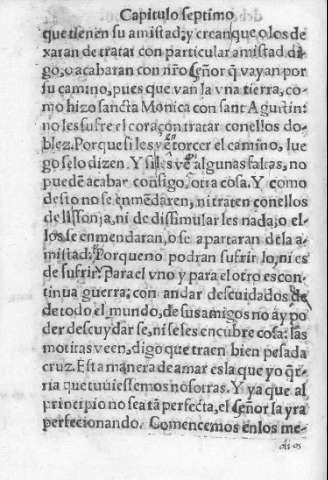 Capitulo septimo
que tienen su amistad; y crean que, o los de
xaran de tratar con particular amistad, di
go, o acabaran con nr̃o Señor q̃ vayan por
su camino, pues que van la vna tierra, co
mo hizo sancta Monica con sant Agustin:
no les sufre el coraçon tratar con ellos do-
blez. Porque si les vẽ torcer el camino, lue
go se lo dizen. Y si les vẽ algunas faltas, no
puedẽ acabar cõsigo, otra cosa. Y como
desto no se enmẽdaren, ni traten con ellos
de lisonja, ni de dissimular les nada; o el-
los se enmendaran, o se apartaran de la a-
mistad: Porque no podran sufrir lo, ni es
de sufrir. Para el vno y para el otro es con
tinua guerra; con andar descuidados de
de todo el mundo, de sus amigos no ay po
der descuydar se, ni se les encubre cosa: las
motitas veen, digo que traen bien pesada
cruz. Esta manera de amar es la que yo q̃r-
ria que tuuiessemos nosotras. Y ya que al
principio no sea tã perfecta, el señor la yra
perfecionando. Comencemos en los me-
di os